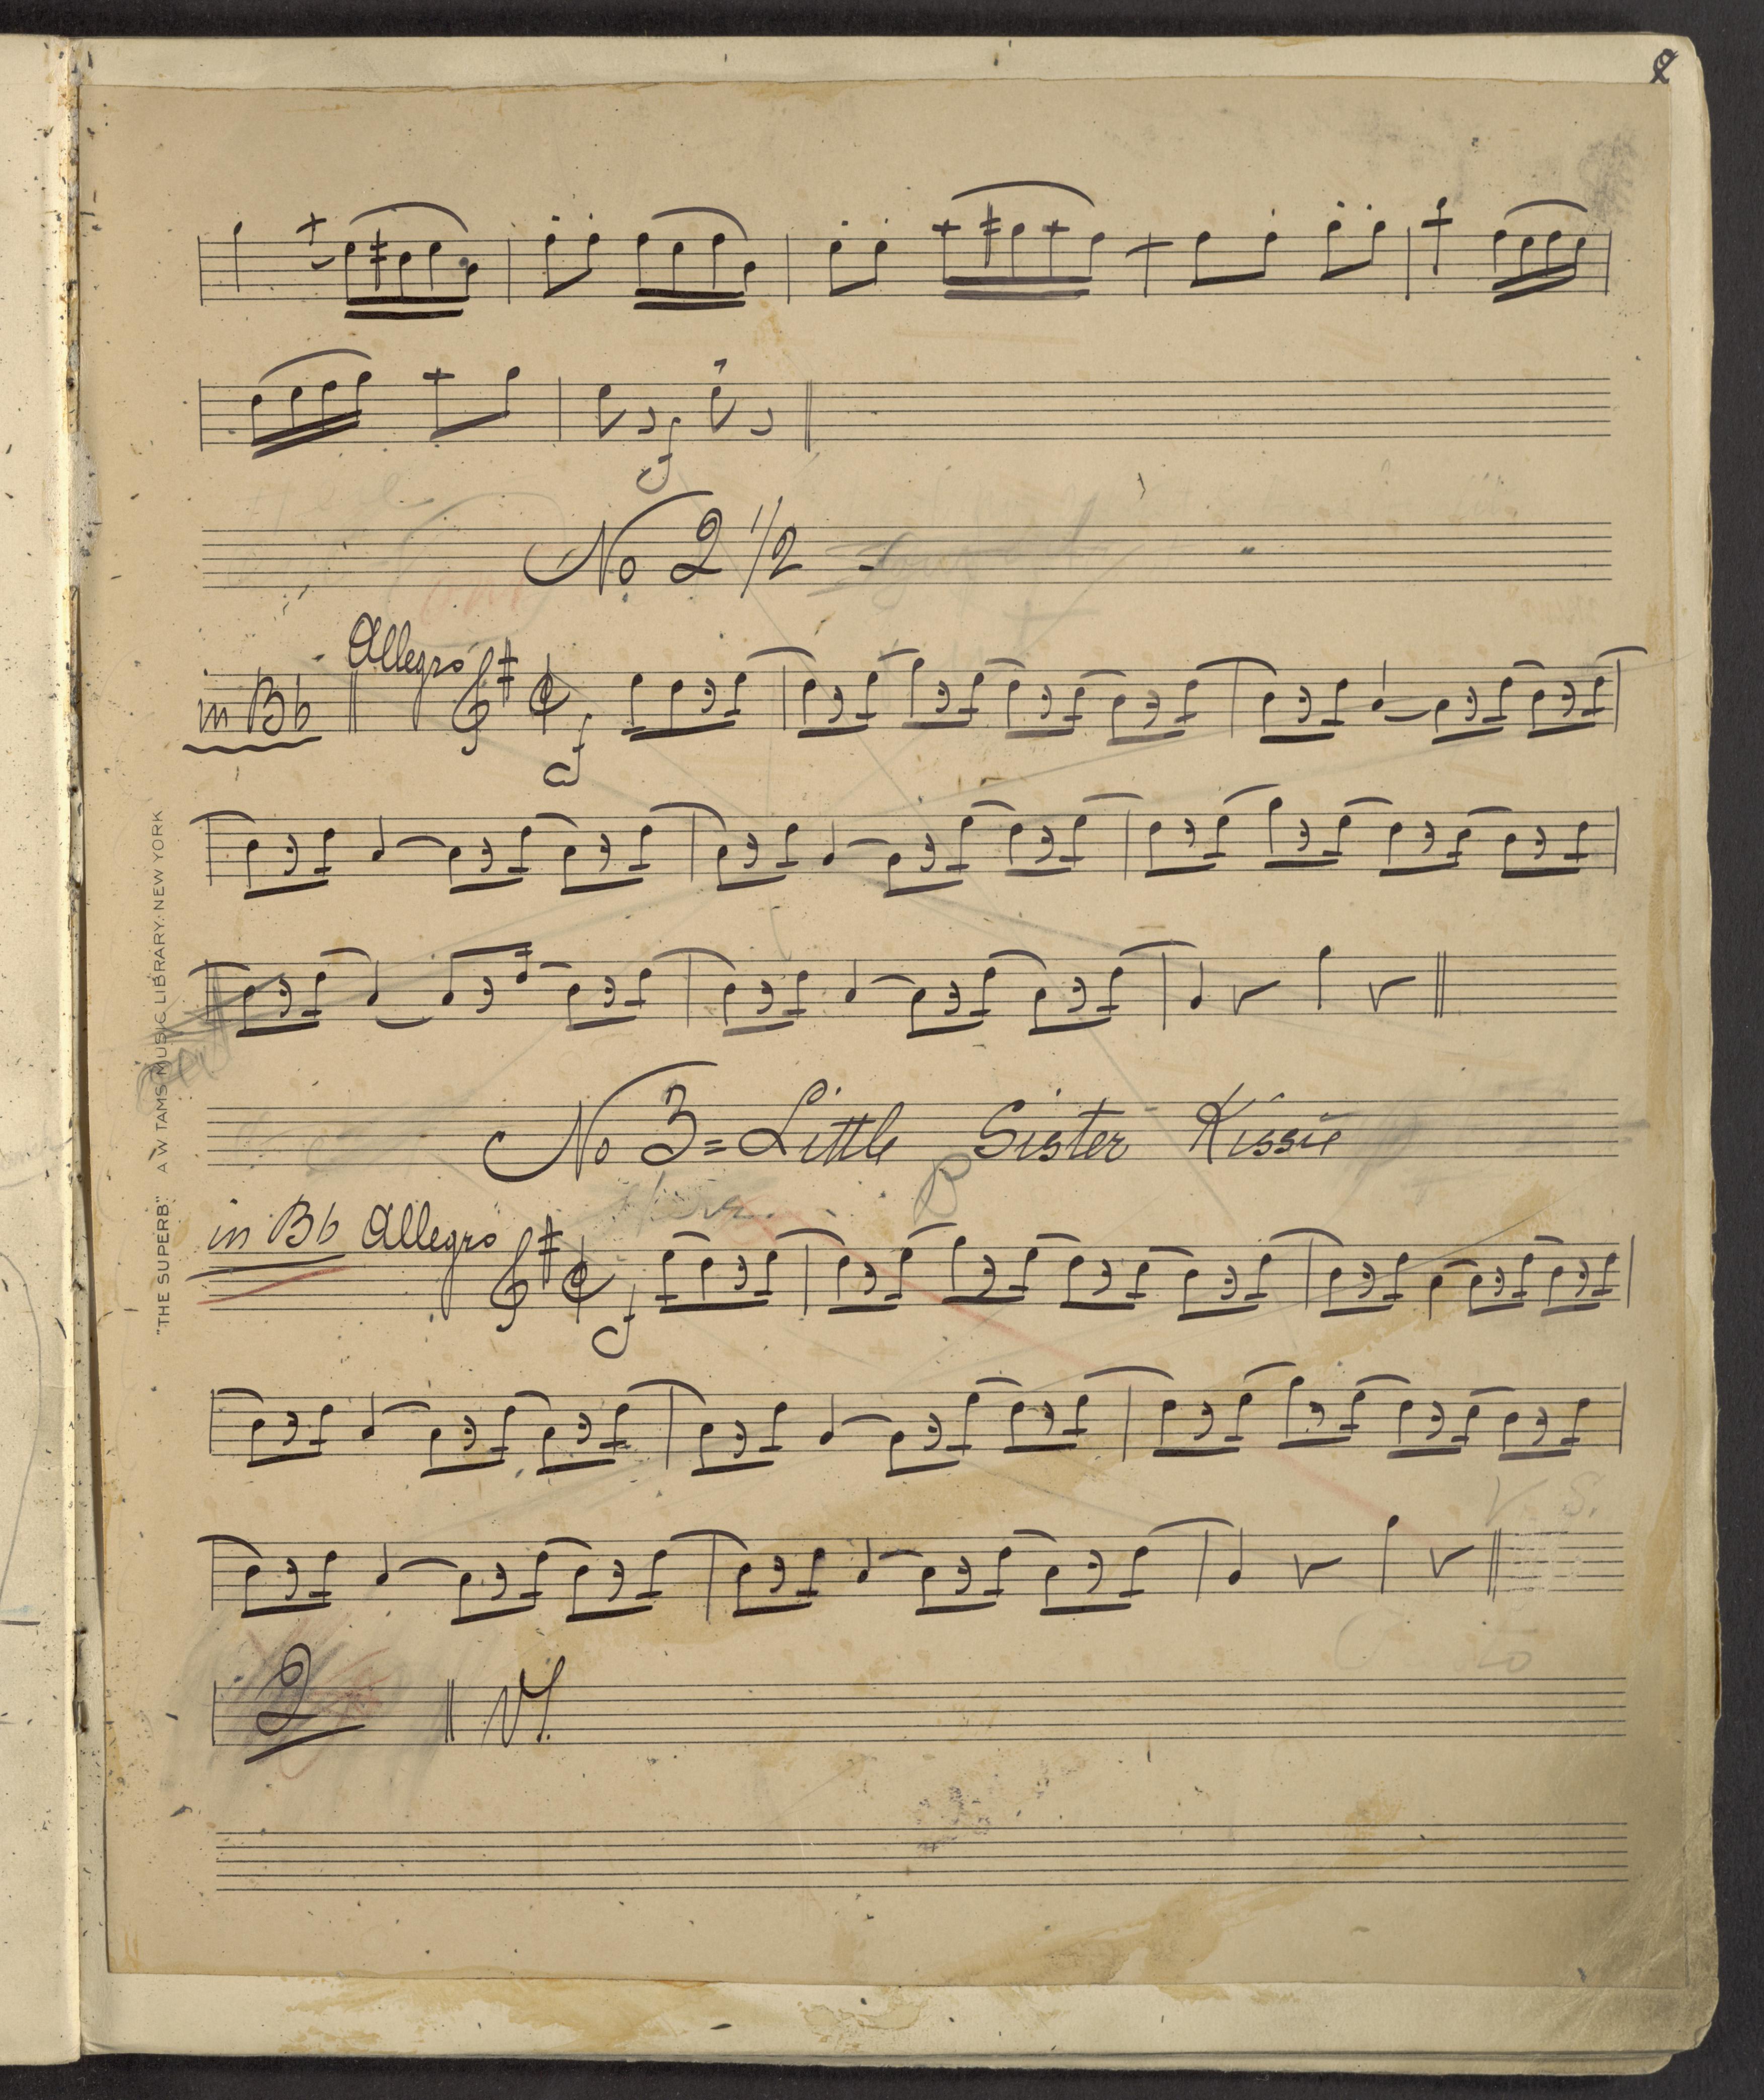 No 2 1/2
Allegro
in Bb
f
No 3 = Little Sister Kissie
in Bb Allegro
f
V. S.
2
"THE SUPERB" A W TAMS MUSIC LIBRARY. NEW YORK